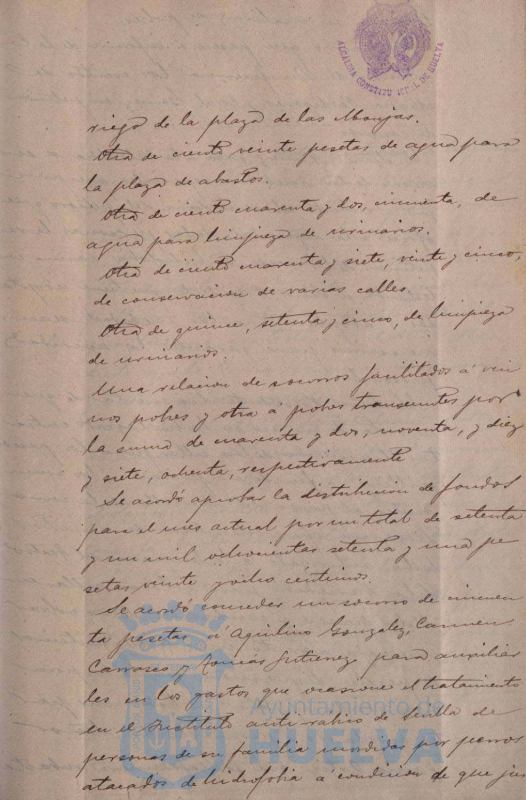 ALCALDIA CONSTITUCIONAL DE HUELVA
riego de la plaza de las Monjas.
Otra de ciento veinte pesetas de agua para
la plaza de abastos.
Otra de ciento cuarenta y dos, cincuenta, de
agua para limpieza de urinarios.
Otra de ciento cuarenta y siete, veinte y cinco,
de conservacion de varias calles.
Otra de quince, setenta y cinco, de limpieza
de urinarios.
Una relacion de socorros facilitados á veci
nos pobres y otra á pobres transeuntes por
la suma de cuarenta y dos, noventa, y diez
y siete, ochenta, respectivamente
Se acordó aprobar la distribucion de fondos
para el mes actual por un total de setenta
y un mil ochocientas setenta y una pe
setas veinte y ocho céntimos.
Se acordó conceder un socorro de cincuen
ta pesetas á Aquilino Gonzalez, Carmen
Carrasco y Tomás Gutierrez para auxiliar
les en los gastos que ocasione el tratamiento
en el Instituto anti-rabico de Sevilla de
personas de su familia mordidas por perros
atacados de hidrofobia á condicion de que jus
Ayuntamiento de
HUELVA